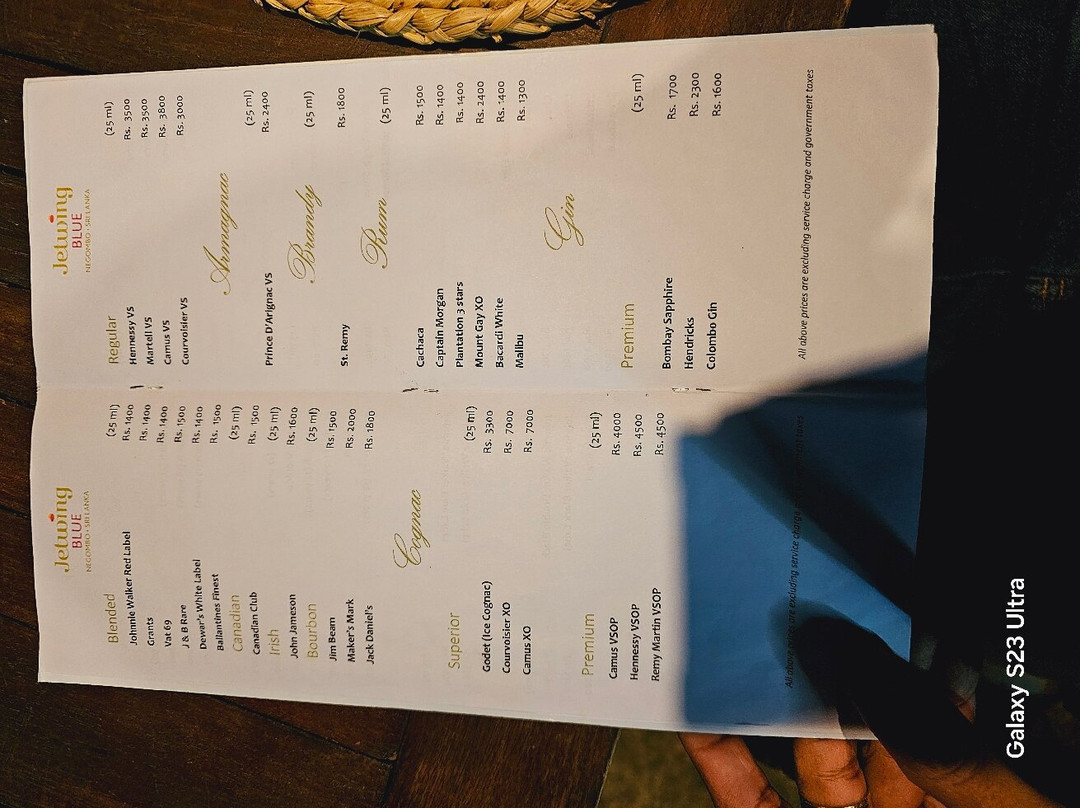 Jetwing
BLUE
NEGOMBO • SRI LANKA
Blended (25 ml)
Johnnie Walker Red Label Rs. 1400
Grants Rs. 1400
Vat 69 Rs. 1400
J & B Rare Rs. 1500
Dewar's White Label Rs. 1400
Ballantines Finest Rs. 1500
Canadian (25 ml)
Canadian Club Rs. 1500
Irish (25 ml)
John Jameson Rs. 1600
Bourbon (25 ml)
Jim Beam Rs. 1500
Maker's Mark Rs. 2000
Jack Daniel's Rs. 1800
Cognac
Superior (25 ml)
Godet (Ice Cognac) Rs. 3300
Courvoisier XO Rs. 7000
Camus XO Rs. 7000
Premium (25 ml)
Camus VSOP Rs. 4000
Hennessy VSOP Rs. 4500
Remy Martin VSOP Rs. 4500
All above prices are excluding service charge
Jetwing
BLUE
NEGOMBO • SRI LANKA
Regular (25 ml)
Hennessy VS Rs. 3500
Martell VS Rs. 3500
Camus VS Rs. 3800
Courvoisier VS Rs. 3000
Armagnac
(25 ml)
Prince D'Arignac VS Rs. 2400
Brandy
(25 ml)
St. Remy Rs. 1800
Rum
(25 ml)
Cachaca Rs. 1500
Captain Morgan Rs. 1400
Plantation 3 stars Rs. 1400
Mount Gay XO Rs. 2400
Bacardi White Rs. 1400
Malibu Rs. 1300
Gin
Premium (25 ml)
Bombay Sapphire Rs. 1700
Hendricks Rs. 2300
Colombo Gin Rs. 1600
All above prices are excluding service charge and government taxes
Galaxy S23 Ultra